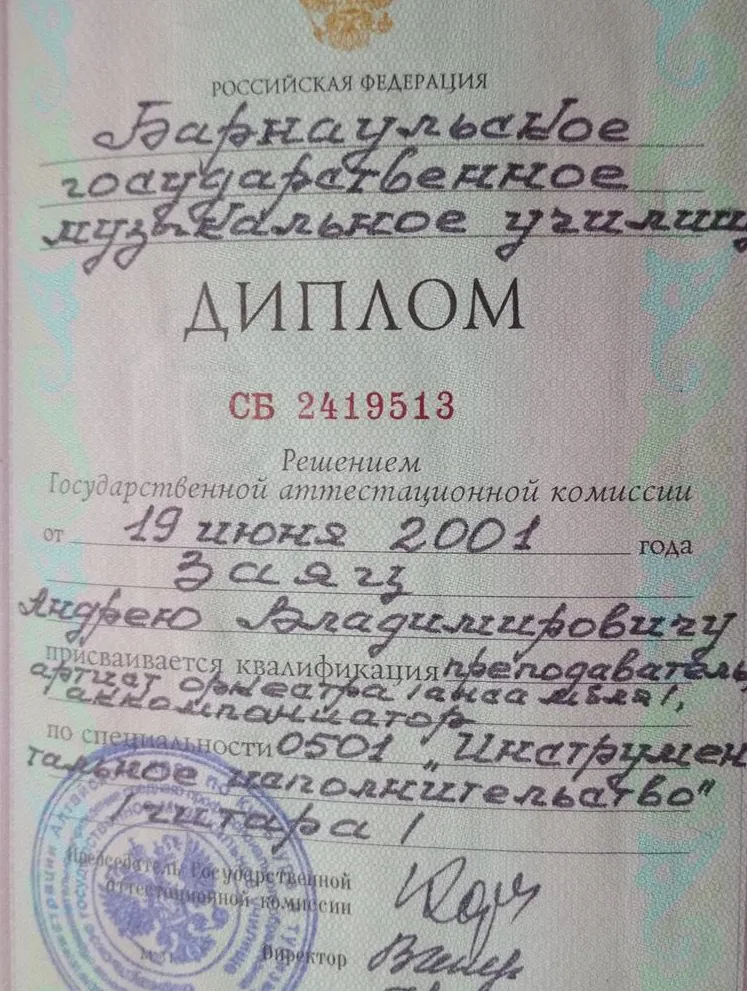 РОССИЙСКАЯ ФЕДЕРАЦИЯ
Барнаульское
государственное
музыкальное училищ
ДИПЛОМ
СБ 2419513
Решением
Государственной аттестационной комиссии
от 19 июня 2001 года
Заяц
Андрею Владимировичу
присваивается квалификация преподаватель,
артист оркестра /ансамбля/,
аккомпаниатор
по специальности 0501 „Инструмен
тальное исполнительство"
/гитара/
Председатель Государственной
аттестационной комиссии
Директор